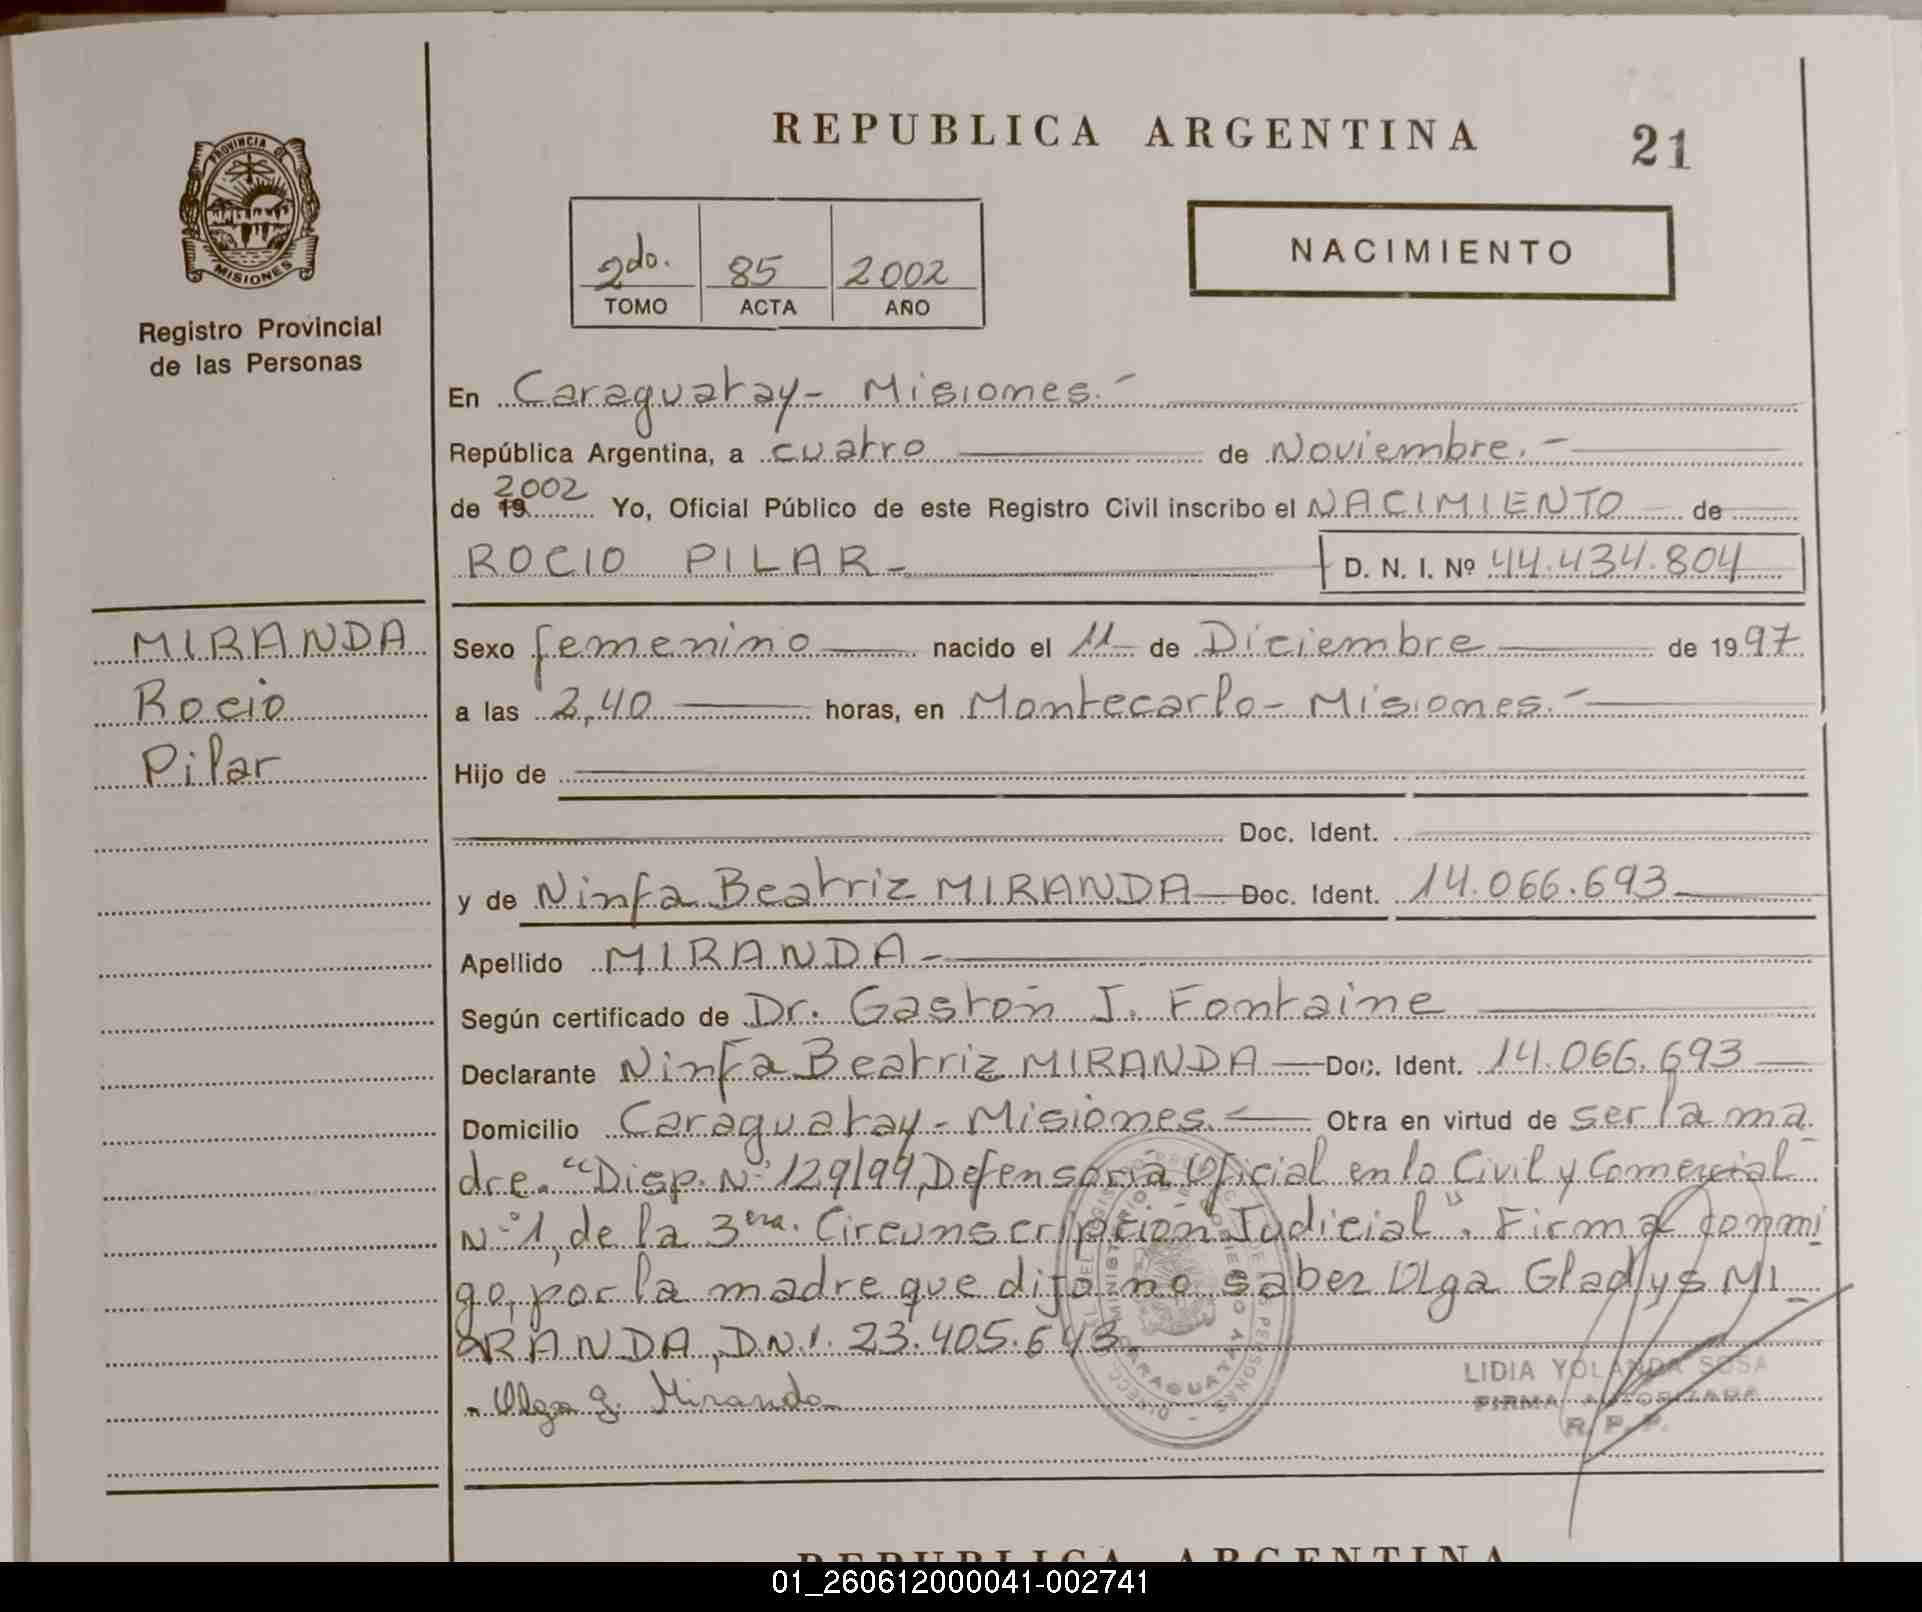 REPUBLICA ARGENTINA
21
PROVINCIA DE
MISIONES
Registro Provincial
de las Personas
2do. 85 2002
TOMO ACTA AÑO
NACIMIENTO
En Caraguatay - Misiones.-
República Argentina, a cuatro de Noviembre.-
de 19 2002 Yo, Oficial Público de este Registro Civil inscribo el NACIMIENTO de
ROCIO PILAR - D. N. I. Nº 44.434.804
MIRANDA
Rocio
Pilar
Sexo femenino nacido el 11 de Diciembre de 1997
a las 2,40 horas, en Montecarlo - Misiones.-
Hijo de
Doc. Ident.
y de Ninfa Beatriz MIRANDA Doc. Ident. 14.066.693
Apellido MIRANDA -
Según certificado de Dr. Gastón J. Fontaine
Declarante Ninfa Beatriz MIRANDA Doc. Ident. 14.066.693
Domicilio Caraguatay - Misiones. Obra en virtud de ser la ma
dre. "Disp. Nº 129/99, Defensoría Oficial en lo Civil y Comercial
Nº 1, de la 3era. Circunscripción Judicial". Firma conmi
go, por la madre que dijo no saber Olga Gladys MI_
RANDA, D.N.I. 23.405.643.
Olga G. Miranda
LIDIA YOLANDA SOSA
FIRMA AUTORIZADA
R. P. P.
REPUBLICA ARGENTINA
01_260612000041-002741